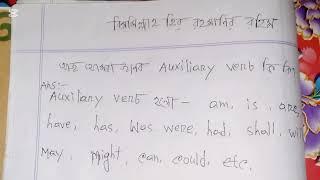 বিসমিল্লাহ হির রহমানির রহিম
Auxiliary verb কি
Ans:-
Auxilary verb হলো - am, is, are,
have, has, Was were, had, shall, will
May, might, can, could, etc.